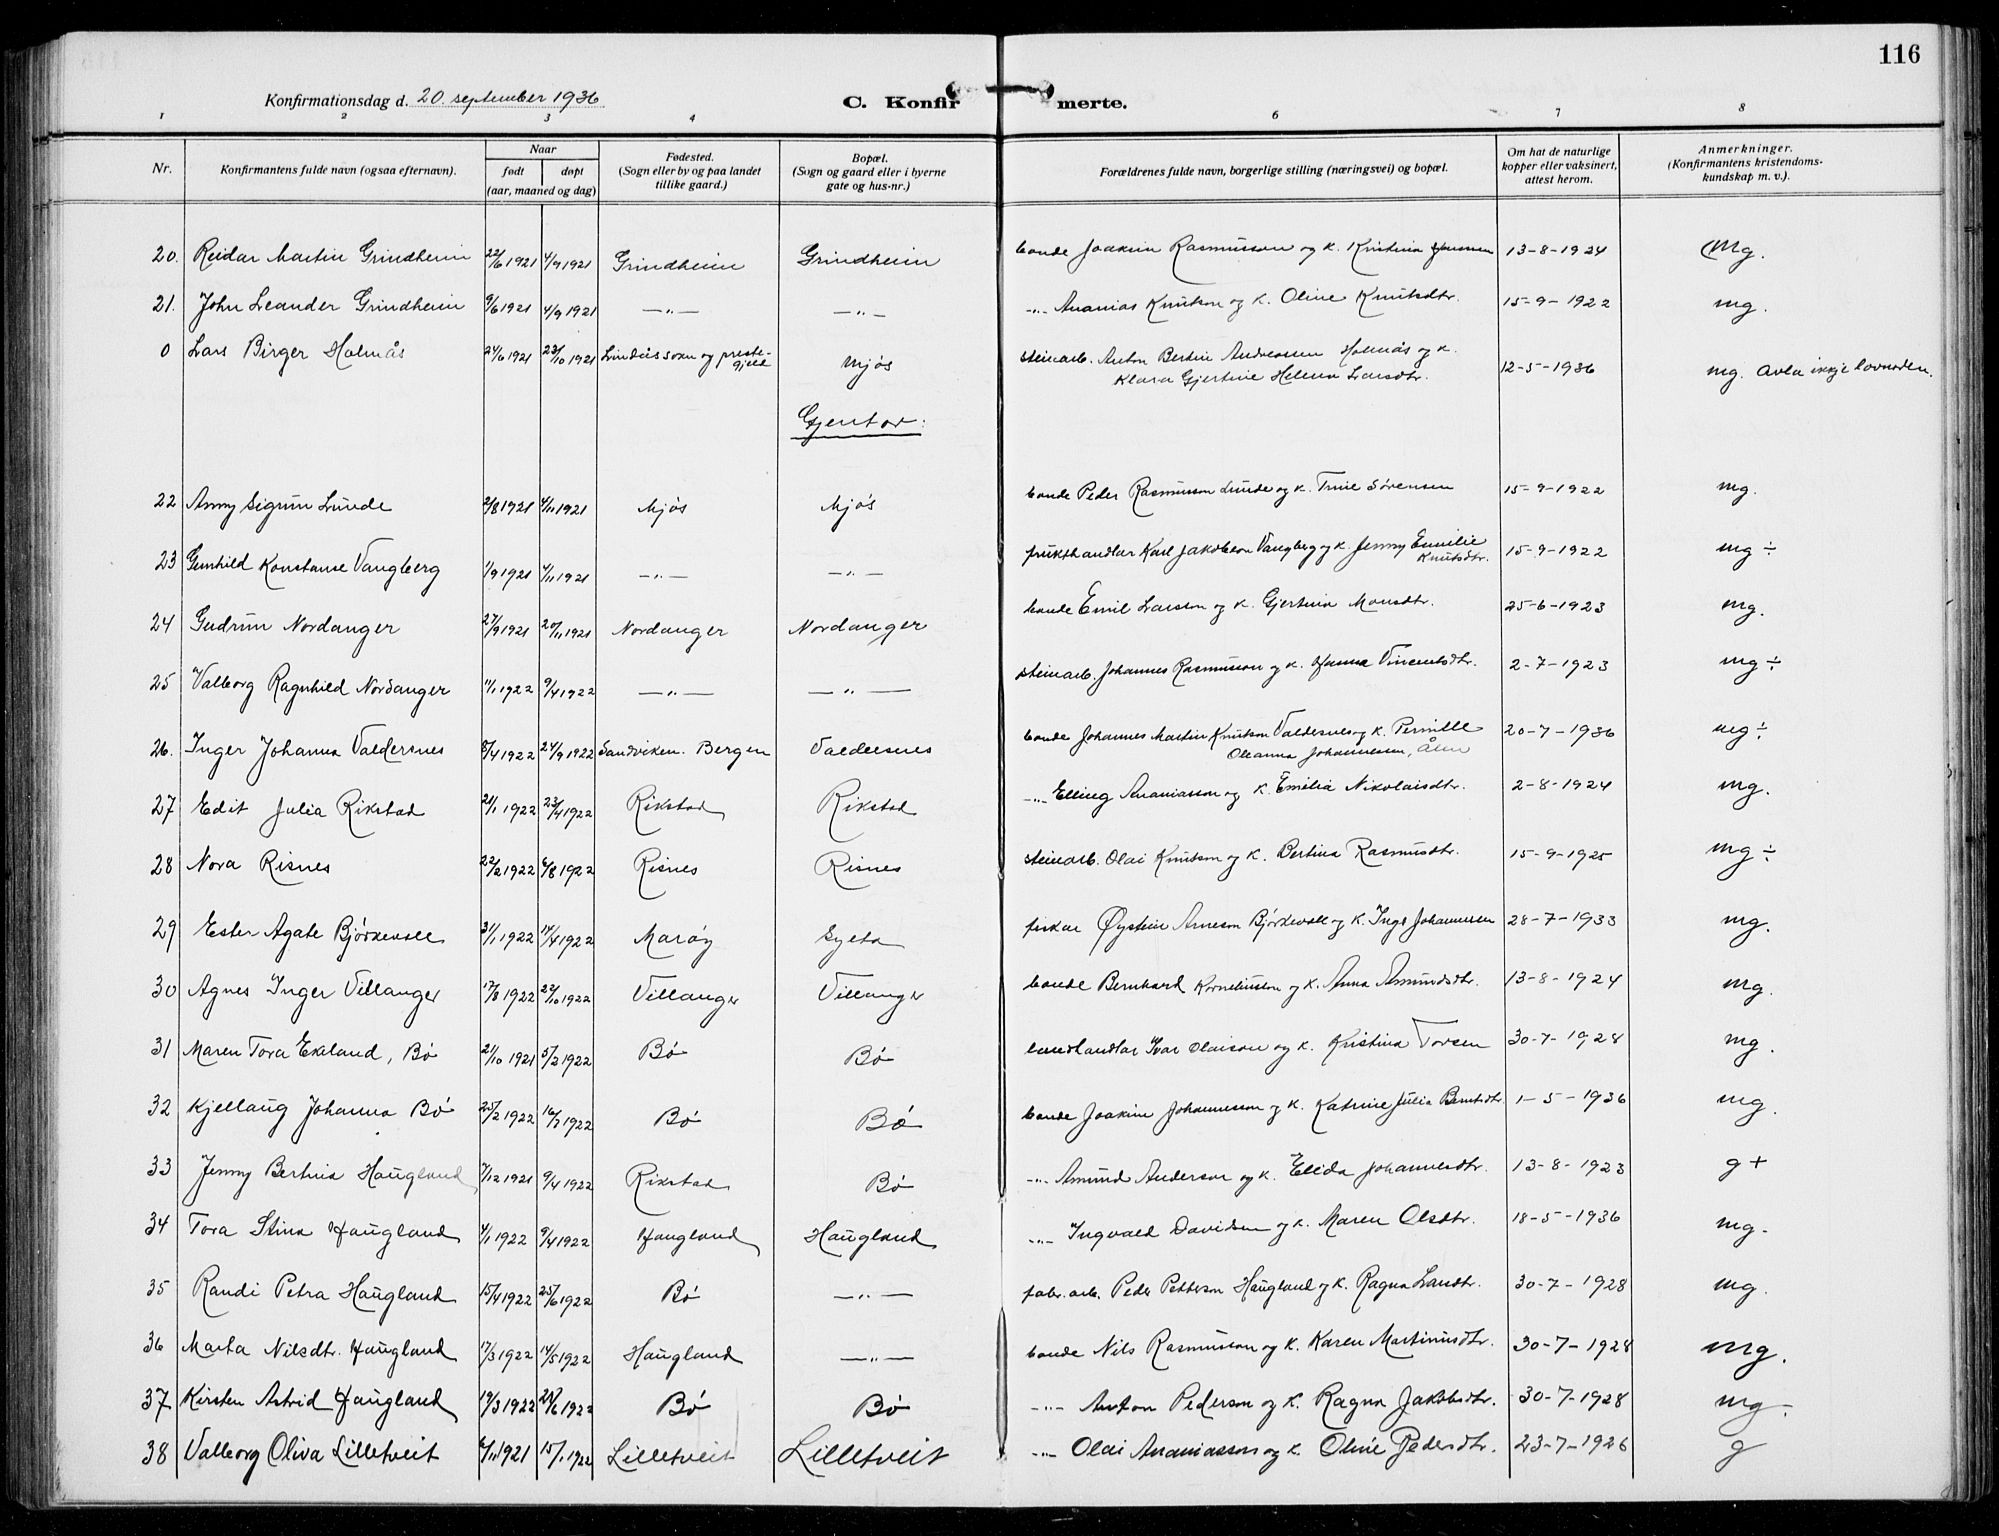 116
Konfirmationsdag d. 20. september 1936 C. Konfirmerte.
1 2 3 4 6 7 8
Nr. Konfirmantens fulde navn (ogsaa efternavn). Naar født døpt (aar, maaned og dag) Fødested. (Sogn eller by og paa landet tillike gaard.) Bopæl. (Sogn og gaard eller i byerne gate og hus-nr.) Forældrenes fulde navn, borgerlige stilling (næringsvei) og bopæl. Om hat de naturlige kopper eller vaksinert, attest herom. Anmerkninger. (Konfirmantens kristendoms-kundskap m. v.).
20. Reidar Martin Grindheim 22/6 1921 4/9 1921 Grindheim Grindheim bonde Joakim Rasmusson og k. Kristina Hansen 13-8-1924 mg.
21. John Leander Grindheim 9/6 1921 4/9 1921 —„— —„— —„— Ananias Knutson og k. Oline Knutsdtr. 15-9-1922 mg.
0 Lars Birger Holmås 24/6 1921 23/10 1921 Lindås sokn og preste-gjeld Mjøs steinarb. Anton Bertin Andreassen Holmås og k. Klara Gjertine Helena Larsdtr. 12-5-1936 mg. Avla ikkje lovnaden.
Gjentor:
22 Anny Sigrun Lunde 2/8 1921 4/11 1921 Mjøs Mjøs bonde Peder Rasmusson Lunde og k. Trine Sørensen 15-9-1922 mg.
23 Gunhild Konstanse Vangberg 1/9 1921 4/11 1921 —„— —„— frukthandlar Karl Jakobson Vangberg og k. Jenny Emilie Knutsdtr. 15-9-1922 mg ÷
24 Gudrun Nordanger 27/9 1921 20/11 1921 Nordanger Nordanger bonde Emil Larsson og k. Gjertina Monsdtr. 25-6-1923 mg.
25 Valborg Ragnhild Nordanger 11/1 1922 9/4 1922 —„— —„— steinarb. Johannes Rasmusson og k. Hanna Vincentsdtr. 2-7-1923 mg ÷
26. Inger Johanna Valdersnes 8/4 1922 24/9 1922 Sandviken. Bergen Valdersnes bonde Johannes Martin Knutson Valdersnes og k. Pernille Oleanna Johannessen, 20-7-1936 mg ÷
27 Edit Julia Rikstad 21/1 1922 23/4 1922 Rikstad Rikstad —„— Elling Ananiasson og k. Emilia Nikolaisdtr. 2-8-1924 mg.
28 Nora Risnes 22/2 1922 6/8 1922 Risnes Risnes steinarb. Olai Knutson og k. Bertina Rasmusdtr. 15-9-1925 mg ÷
29 Ester Agate Bjørkevoll 31/1 1922 14/4 1922 Marøy Sylta fiskar Øystein Arneson Bjørkevoll og k. Inga Johannessen 28-7-1933 mg.
30 Agnes Inger Villanger 17/8 1922 22/10 1922 Villanger Villanger bonde Bernhard Korneliuson og k. Anna Amundsdtr. 13-8-1924 mg.
31 Maren Tora Ekeland, Bø 21/10 1921 5/2 1922 Bø Bø landhandlar Ivar Olaison og k. Kristina Torsen 30-7-1928 mg.
32 Kjellaug Johanna Bø 25/2 1922 16/7 1922 Bø Bø bonde Joakim Johannesson og k. Katrine Julia Berntsdtr. 1-5-1936 mg.
33 Jenny Bertina Haugland 7/12 1921 9/4 1922 Rikstad Bø —„— Amund Anderson og k. Elida Johannesdtr. 13-8-1923 g +
34 Tora Stina Haugland 4/1 1922 9/4 1922 Haugland Haugland —„— Ingvald Davidsen og k. Maren Olsdtr. 18-5-1936 mg.
35 Randi Petra Haugland 15/4 1922 25/6 1922 Bø —„— fabr. arb. Peder Petterson Haugland og k. Ragna Larsdtr. 30-7-1928 mg.
36 Marta Nilsdtr. Haugland 17/3 1922 14/5 1922 Haugland —„— bonde Nils Rasmusson og k. Karen Martinusdtr. 30-7-1928 mg.
37 Kirsten Astrid Haugland 19/3 1922 25/6 1922 Bø Bø —„— Anton Pederson og k. Ragna Jakobsdtr. 30-7-1928 mg.
38 Valborg Oliva Lilletveit 6/11 1921 15/1 1922 Lilletveit Lilletveit —„— Olai Ananiasson og k. Oline Pedersdtr. 23-7-1926 g